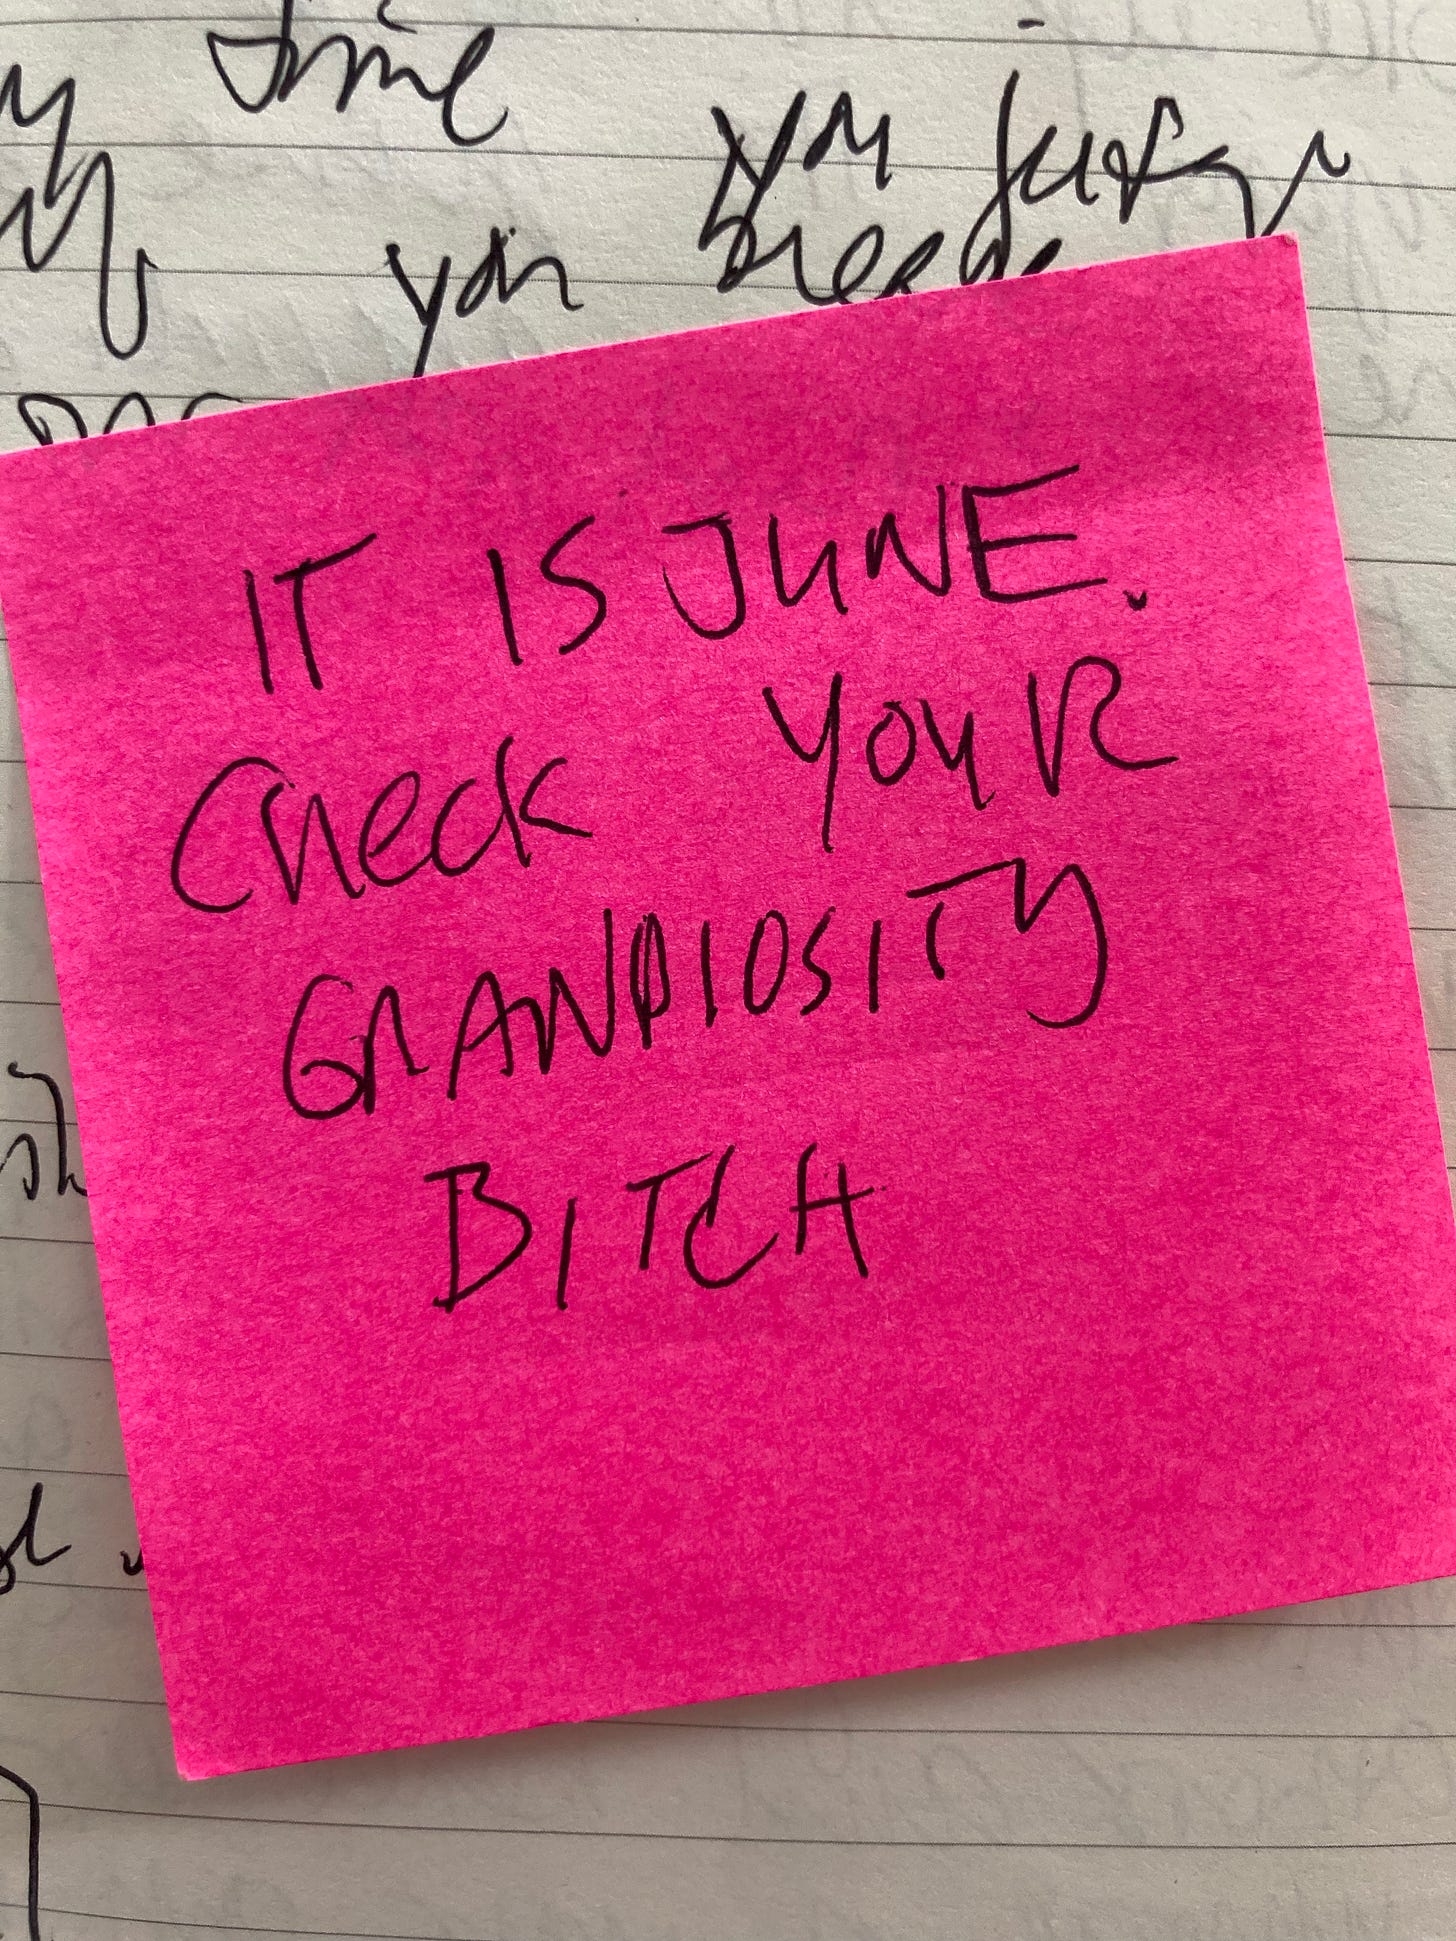 time
you judge
you need
IT IS JUNE.
Check YOUR
GRANDIOSITY
BITCH